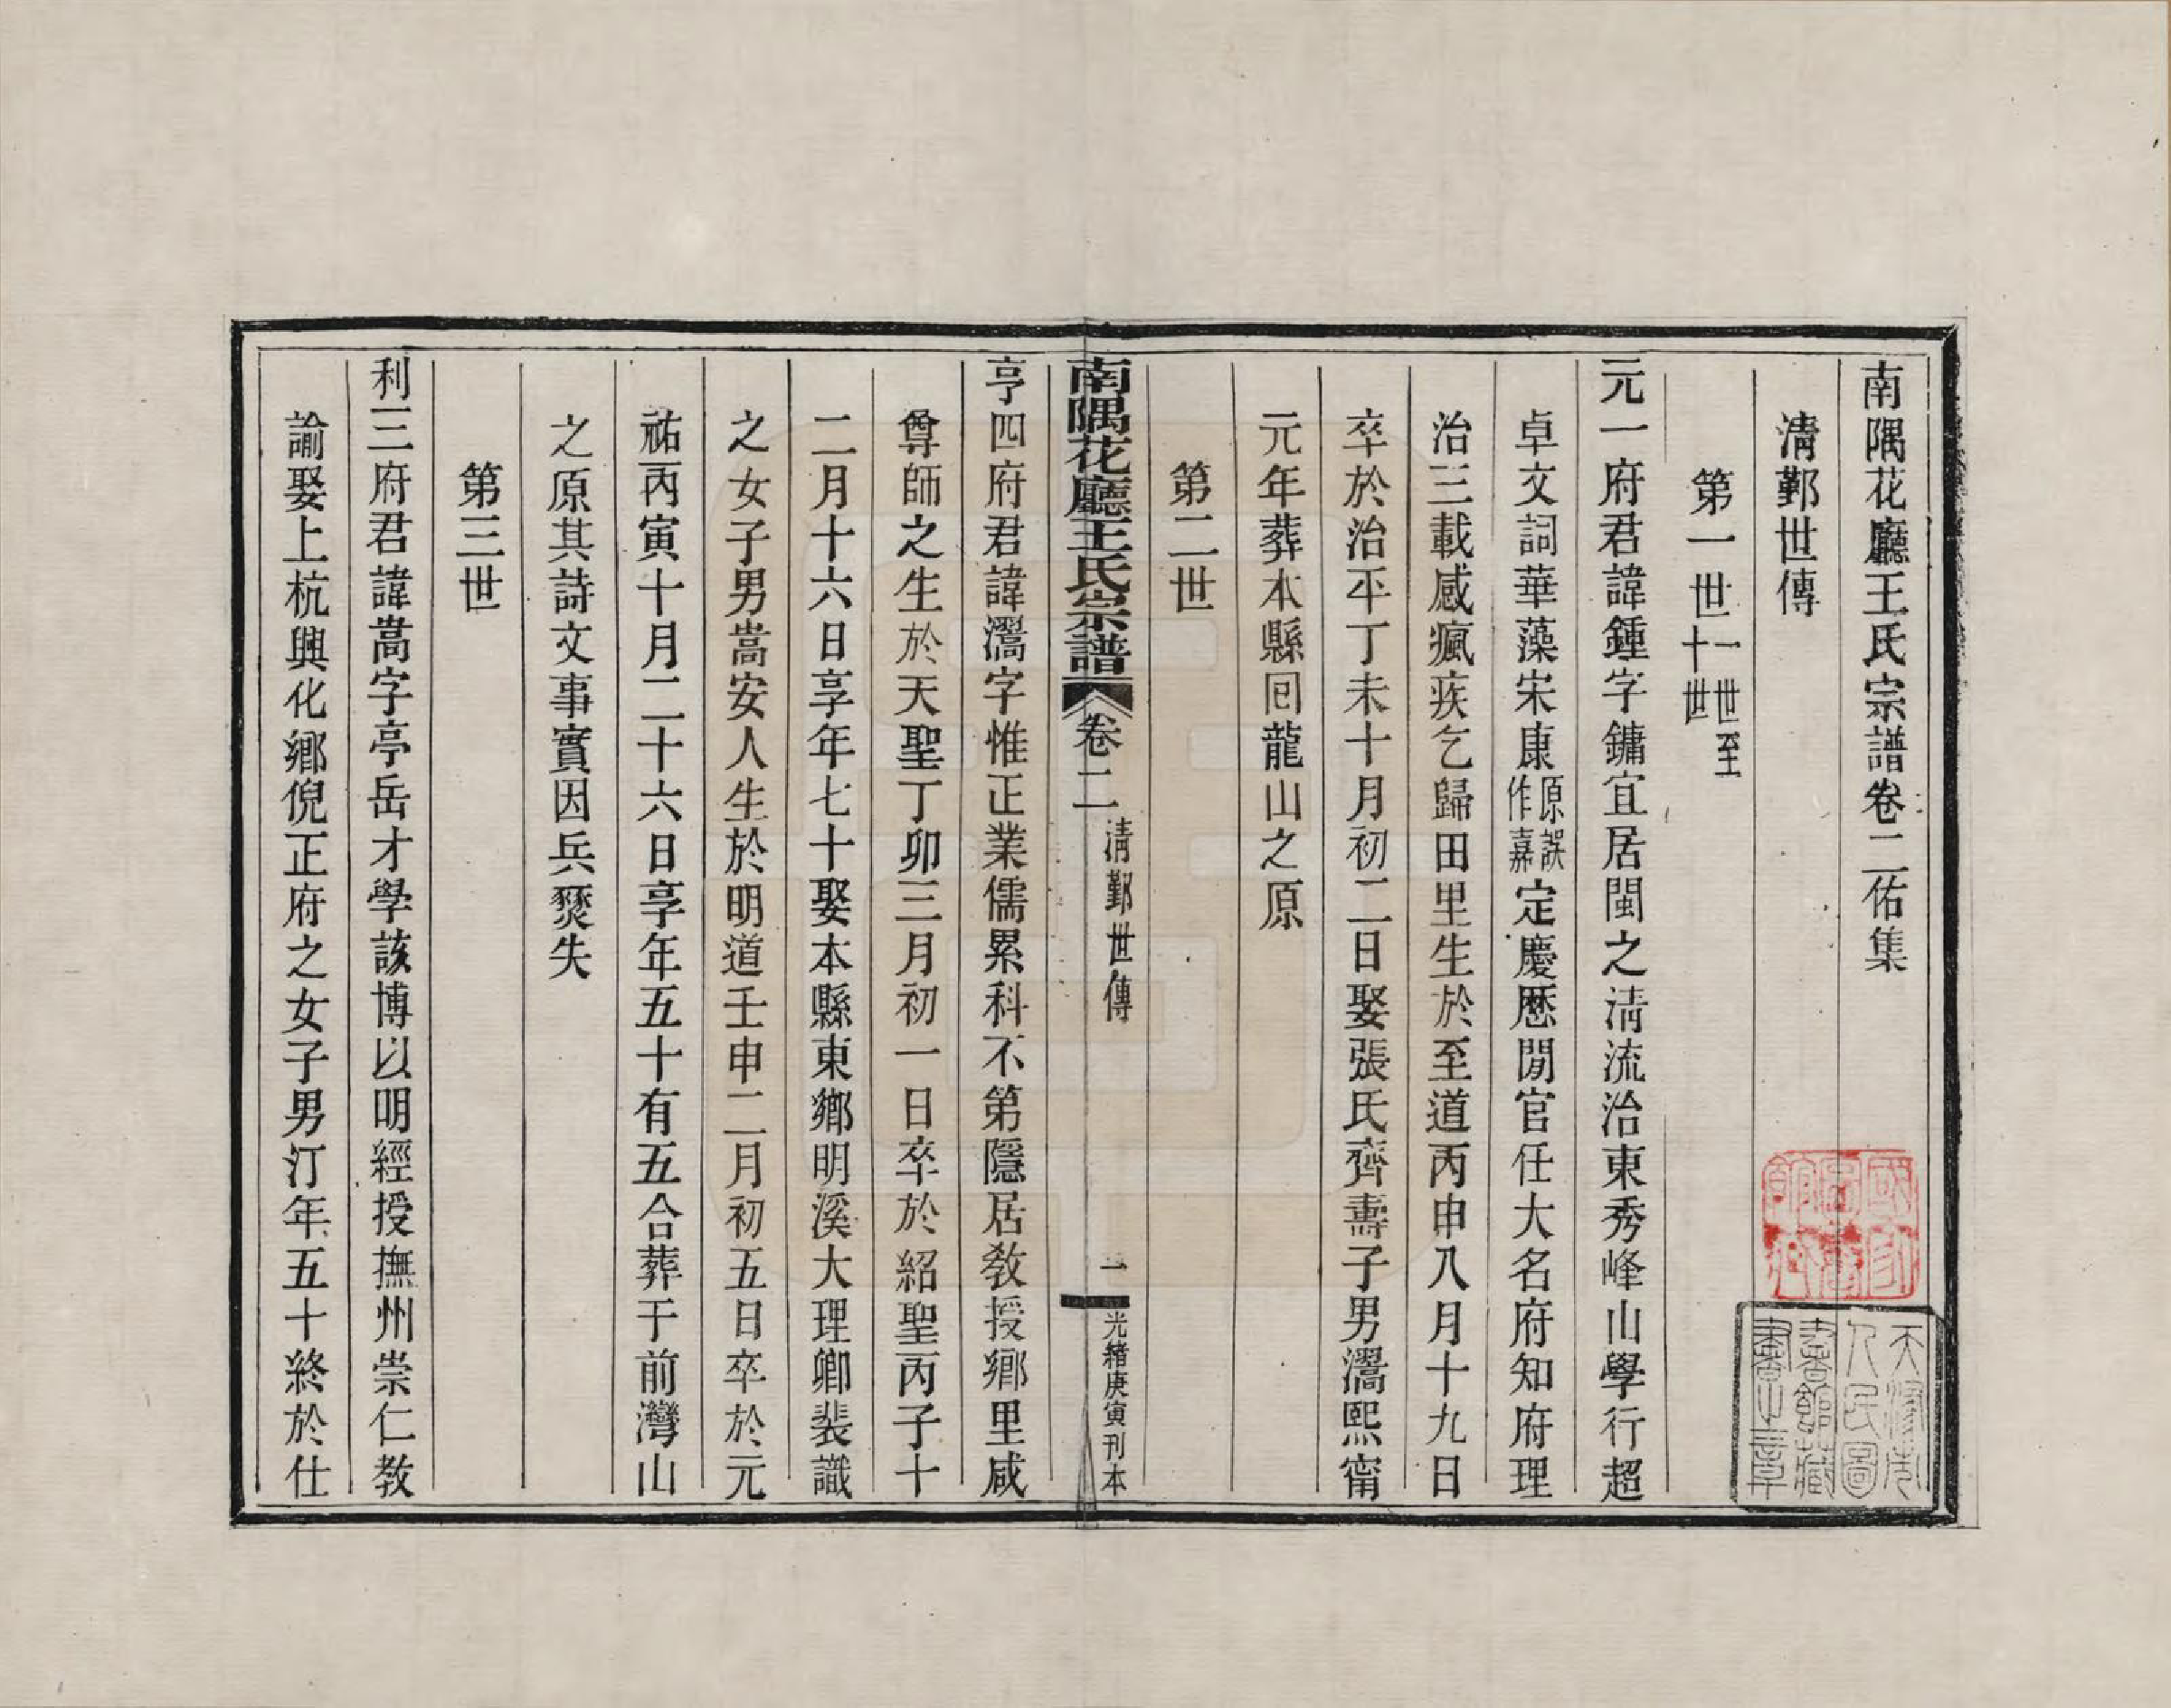 南隅花廳王氏宗譜卷二佑集
淸鄞世傳
第一世一世至十世
元一府君諱鍾字鏞宜居閩之淸流治東秀峰山學行超
卓文詞華藻宋康原誤作嘉定慶厯閒官任大名府知府理
治三載感瘋疾乞歸田里生於至道丙申八月十九日
卒於治平丁未十月初二日娶張氏齊壽子男濿熙甯
元年葬本縣囘龍山之原
第二世
南隅花廳王氏宗譜 卷二 淸鄞世傳 一 光緖庚寅刊本
亨四府君諱濿字惟正業儒累科不第隱居敎授鄉里咸
尊師之生於天聖丁卯三月初一日卒於紹聖丙子十
二月十六日享年七十娶本縣東鄉明溪大理卿裴識
之女子男嵩安人生於明道壬申二月初五日卒於元
祐丙寅十月二十六日享年五十有五合葬于前灣山
之原其詩文事實因兵燹失
第三世
利三府君諱嵩字亭岳才學該博以明經授撫州崇仁敎
諭娶上杭興化鄉倪正府之女子男汀年五十終於仕
國家圖書館藏
天津市人民圖書館藏書之章